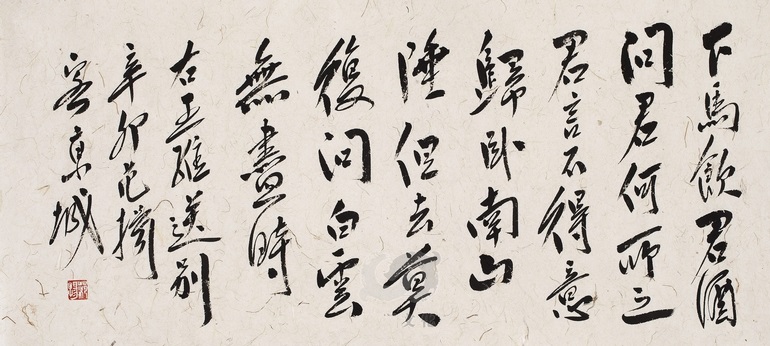 下馬飲君酒
問君何所之
君言不得意
歸卧南山
陲但去莫
復問白雲
無盡時
右王維送别
辛卯范揚
客京城